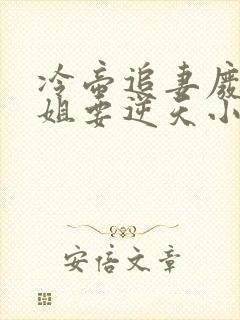 冷帝追妻废
姐要逆天小
安倍文章